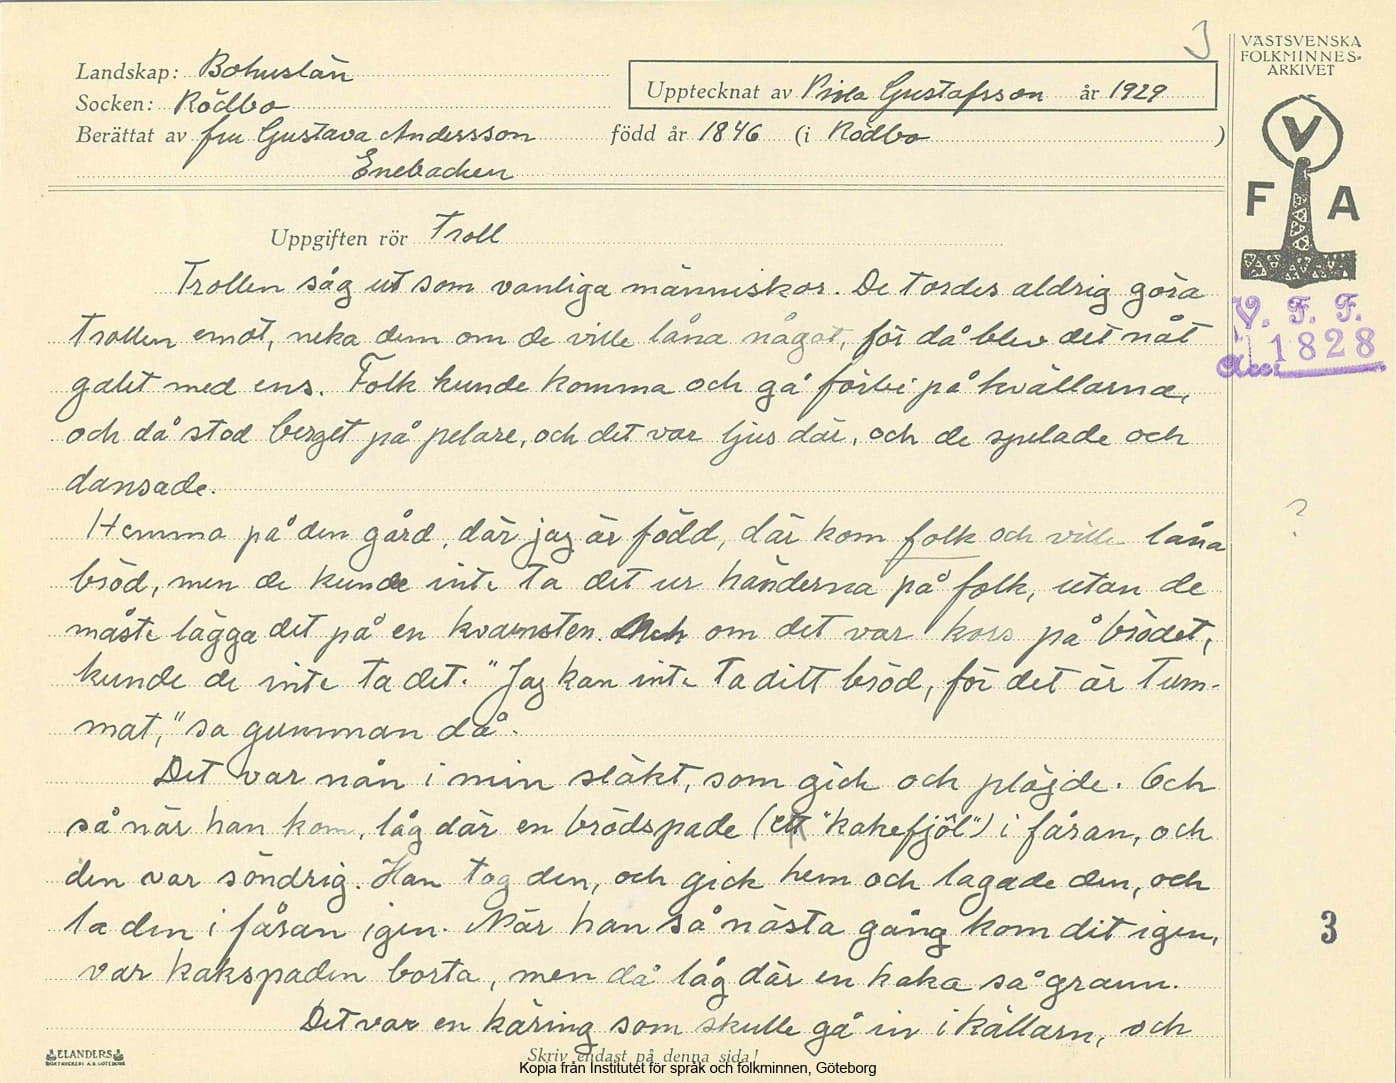 3
VÄSTSVENSKA
FOLKMINNES-
ARKIVET
Landskap: Bohuslän
Socken: Rödbo
Upptecknat av Viola Gustafsson år 1929
Berättat av fru Gustava Andersson född år 1846 (i Rödbo )
Enebacken
V
F A
Uppgiften rör Troll
V. F. F.
Acc: 1828
Trollen såg ut som vanliga människor. De tordes aldrig göra
trollen emot, neka dem om de ville låna något, för då blev det nåt
galet med ens. Folk kunde komma och gå förbi på kvällarna,
och då stod berget på pelare, och det var ljus där, och de spelade och
dansade.
Hemma på den gård, där jag är född, där kom folk och ville låna
?
bröd, men de kunde inte ta det ur händerna på folk, utan de
måste lägga det på en kvarnsten. Och om det var kors på brödet,
kunde de inte ta det. "Jag kan inte ta ditt bröd, för det är tum-
mat," sa gumman då.
Det var nån i min släkt, som gick och plöjde. Och
så när han kom, låg där en brödspade (ett "kakefjöl") i fåran, och
den var söndrig. Han tog den, och gick hem och lagade den, och
la den i fåran igen. När han så nästa gång kom dit igen,
3
var kakspaden borta, men då låg där en kaka så grann.
Det var en käring som skulle gå in i källarn, och
ELANDERS
BOKTRYCKERI A.B. GÖTEBORG
Skriv endast på denna sida!
Kopia från Institutet för språk och folkminnen, Göteborg